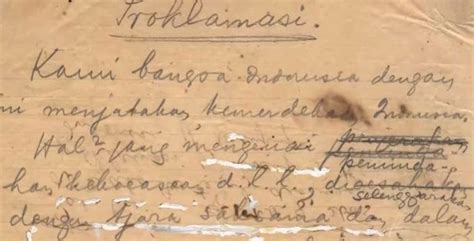 Proklamasi.
Kami bangsa Indonesia dengan
ni menjatakan kemerdekaan Indonesia.
Hal² jang mengenai
peminda-
han kekoeasaan d.l.l., diselenggarakan
dengan tjara saksama dan dalam